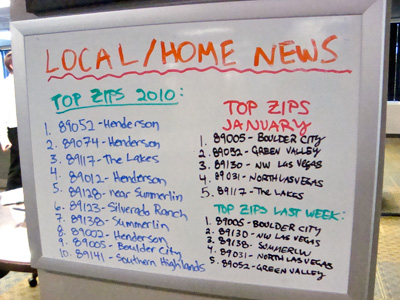 LOCAL/HOME NEWS
TOP ZIPS 2010:
1. 89052-Henderson
2. 89074-Henderson
3. 89117-The Lakes
4. 89012-Henderson
5. 89128-near Summerlin
6. 89123-Silverado Ranch
7. 89138-Summerlin
8. 89002-Henderson
9. 89005-Boulder City
10. 89141-Southern Highlands
TOP ZIPS
JANUARY
1. 89005-BOULDER CITY
2. 89052-GREEN VALLEY
3. 89130-NW LAS VEGAS
4. 89031-NORTH LAS VEGAS
5. 89117-THE LAKES
TOP ZIPS LAST WEEK:
1. 89005-BOULDER CITY
2. 89130-NW LAS VEGAS
3. 89138-SUMMERLIN
4. 89031-NORTH LAS VEGAS
5. 89052-GREEN VALLEY